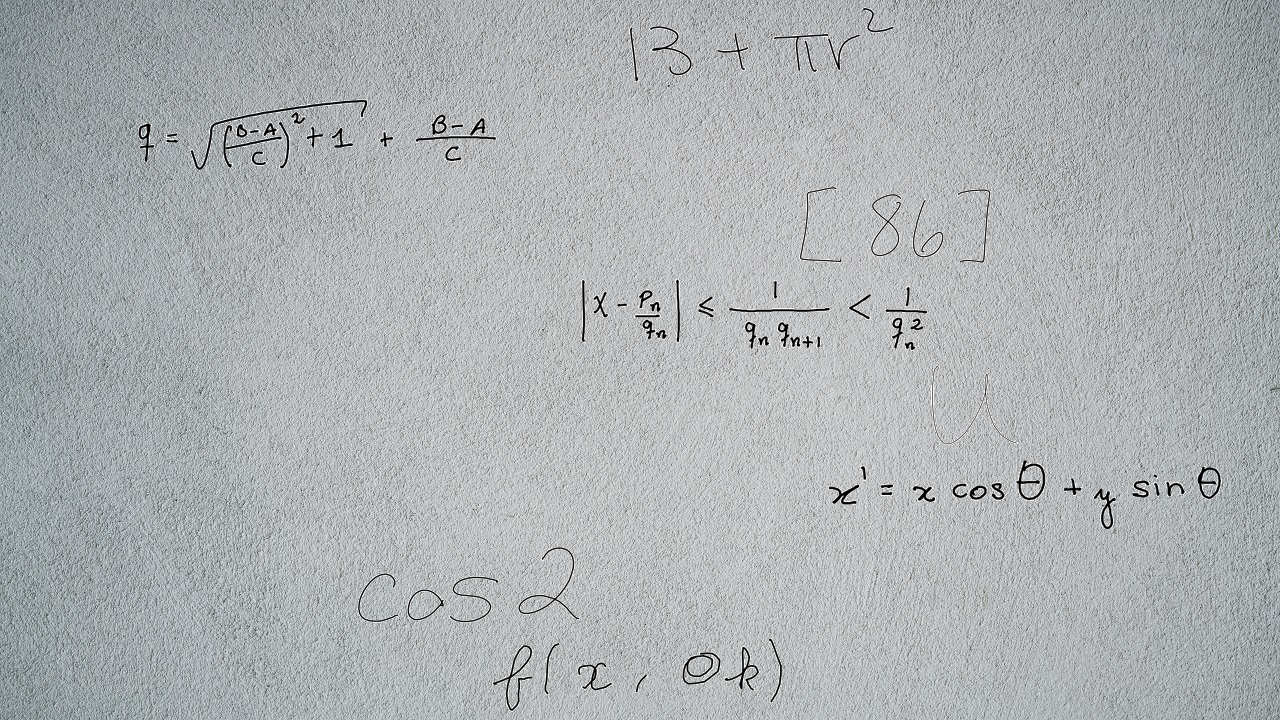 13 + πr²
q = √((B-A)/C)² + 1 + (B-A)/C
[86]
|x - pₙ/qₙ| ≤ 1/(qₙ qₙ₊₁) < 1/qₙ²
u
x' = x cos θ + y sin θ
cos 2
f(x, Ok)